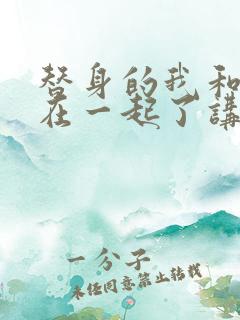 替身的我和
在一起了講
一分子
未经同意禁止转载